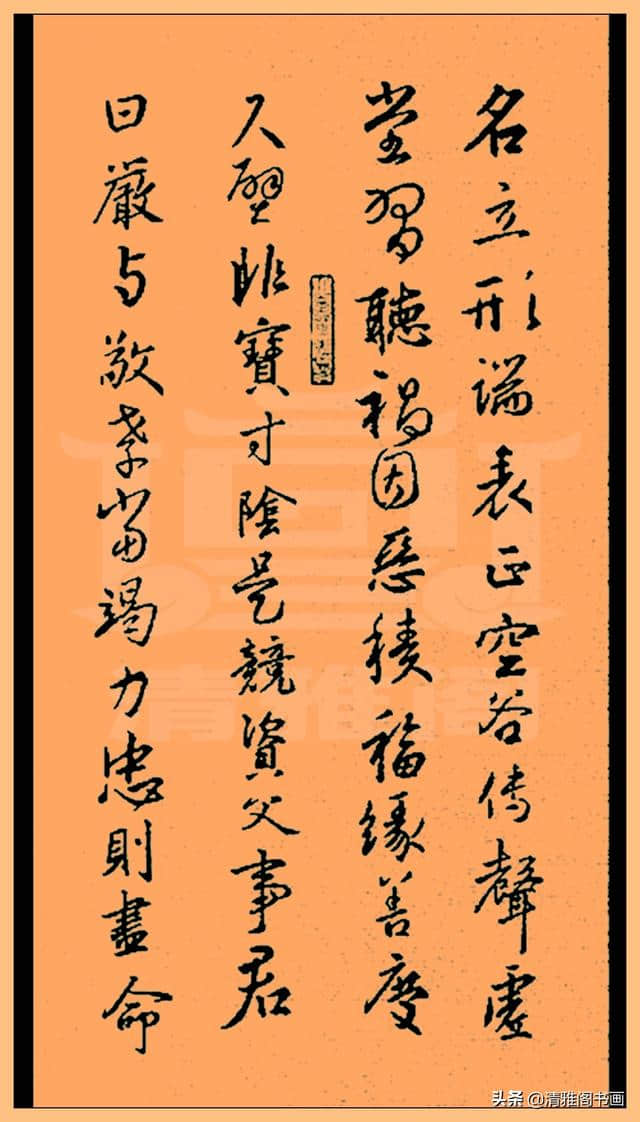 名立形端表正空谷传聲虛
堂習聽禍因惡積福緣善慶
尺璧非寶寸陰是競資父事君
曰嚴与敬孝當竭力忠則盡命
清雅阁
头条 @清雅阁书画